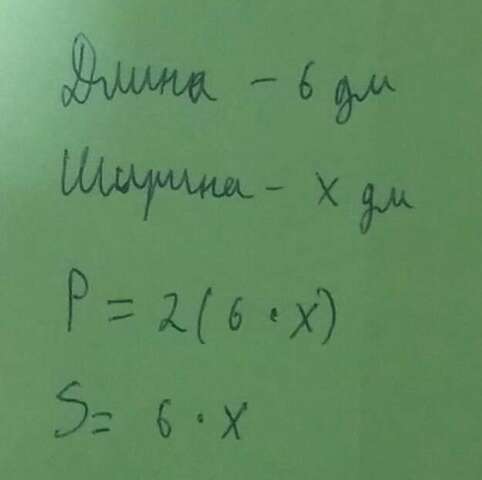 Длина - 6 дм
Ширина - х дм
P = 2(6 · x)
S = 6 · x